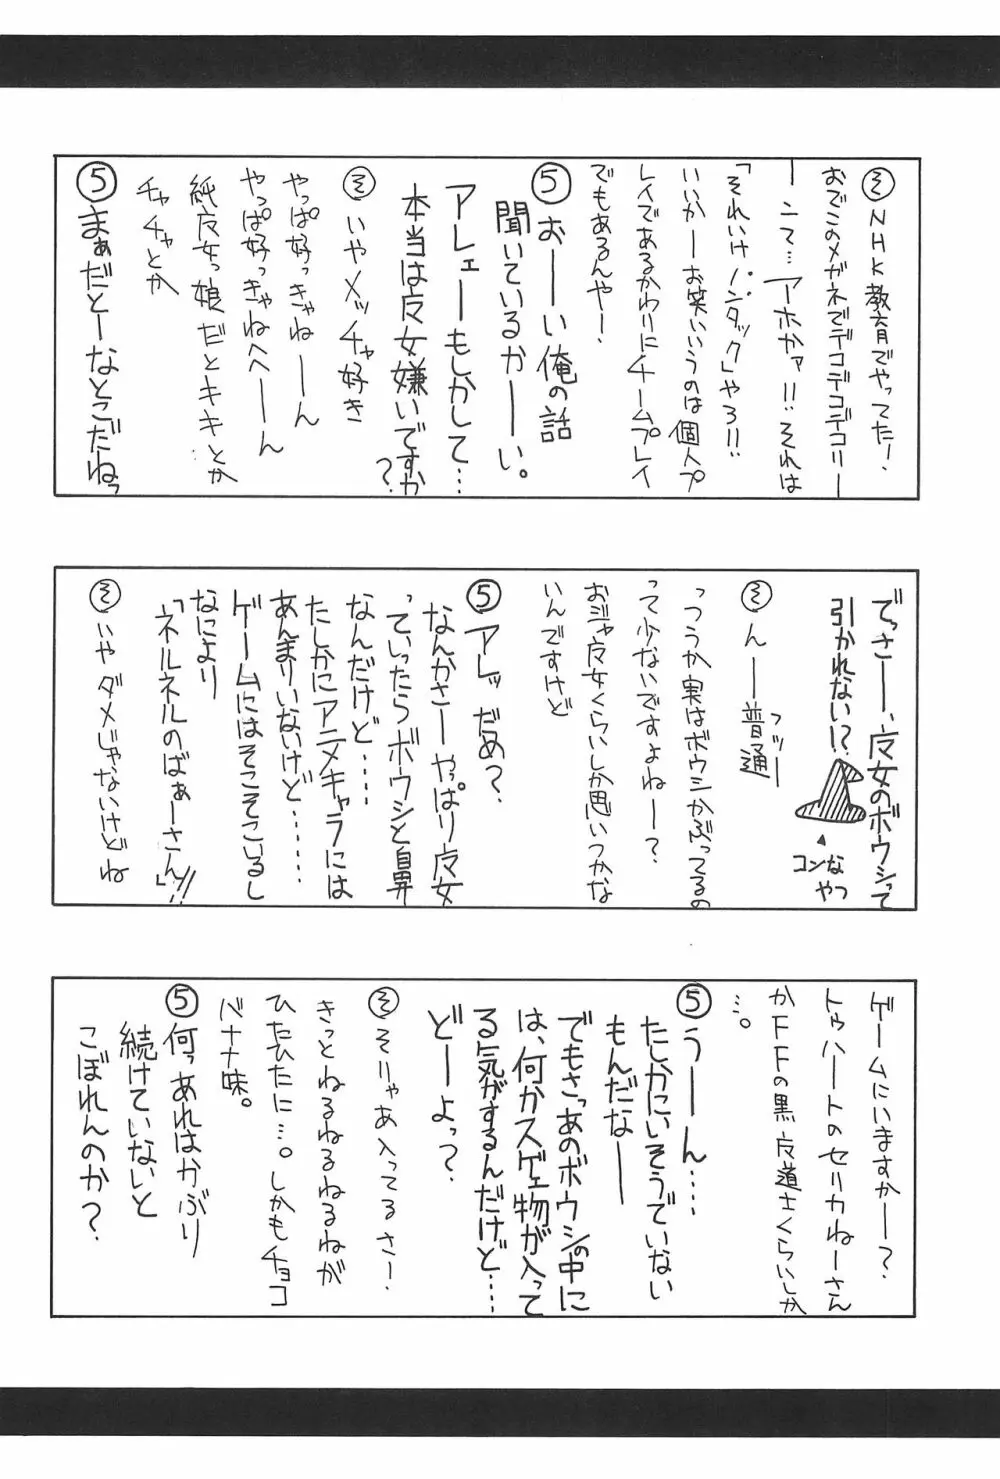 そ NHK教育でやってた！
おでこのメガネでデコデコデコリー
ーンて…アホかァ!!それは
「それいけノンタック」やろ!!
いいかーお笑いいうのは個人プ
レイであるかわりにチームプレイ
でもあるんやー！
⑤ おーーい俺の話
聞いているかーーい。
アレェーーもしかして…
本当は反女嫌いですか
？
そ いやメッチャ好き
やっぱ好っきゃねーーん
やっぱ好っきゃねへーーん
純反女っ娘だとキキとか
チャチャとか
⑤ まぁだとーなとこだねっ
でっさーー、反女のボウシって
引かれない!?
コンな
やつ
そ んーー普通
フツー
っつうか実はボウシかぶってるの
って少ないですよねー？
おジャ反女くらいしか思いつかな
いんですけど
⑤ アレッだめ？
なんかさーやっぱり反女
っていったらボウシと鼻
なんだけど……
たしかにアニメキャラには
あんまりいないけど……
ゲームにはそこそこいるし
なにより
「ネルネルのばぁーさん」!!
そ いやダメじゃないけどね
ゲームにいますかーー？
トゥハートのセリカねーさん
かFFの黒反道士くらいしか
…。
⑤ うーーん……
たしかにいそうでいない
もんだなーー
でもさっあのボウシの中に
は、何かスゲェ物が入って
る気がするんだけど……
どーよっ？
そ そりゃあ入ってるさー！
きっとねるねるねるねが
ひたひたに…。しかもチョコ
バナナ味。
⑤ 何っあれはかぶり
続けていないと
こぼれんのか？